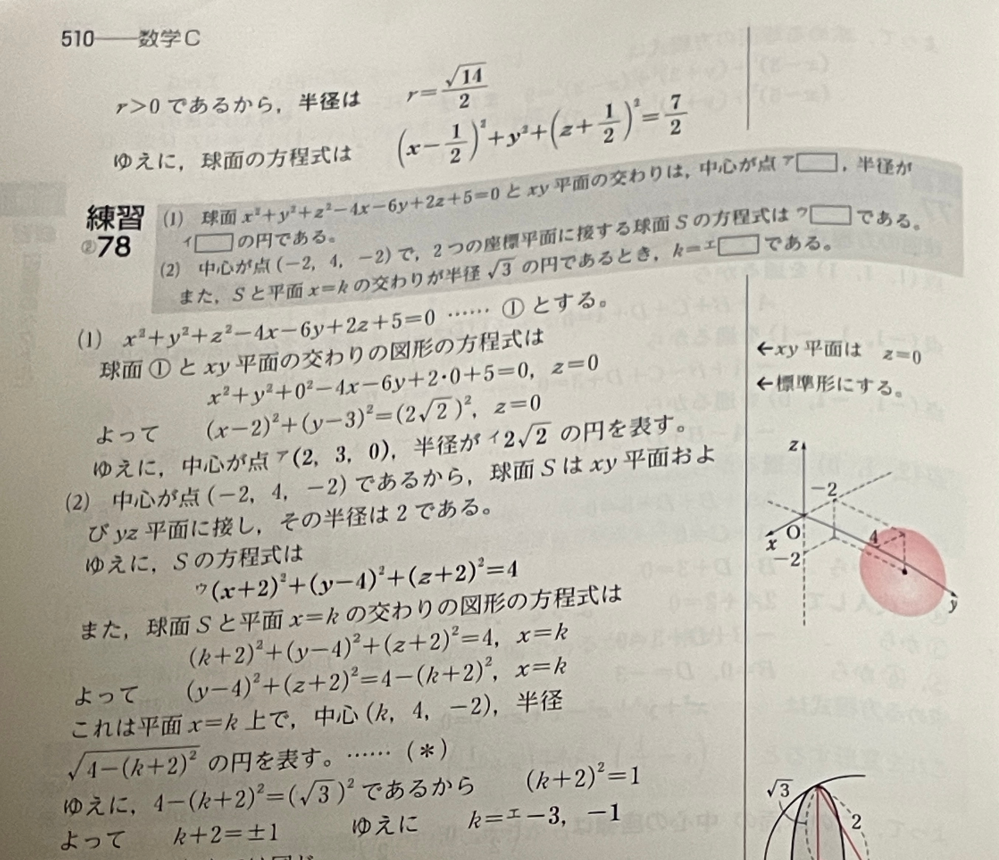 510 数学C
r>0 であるから，半径は r=√14/2
ゆえに，球面の方程式は (x−1/2)²+y²+(z+1/2)²=7/2
練習 ②78
(1) 球面 x²+y²+z²−4x−6y+2z+5=0 と xy 平面の交わりは，中心が点 ア□，半径が
イ□の円である。
(2) 中心が点 (−2, 4, −2) で，2つの座標平面に接する球面 S の方程式は ウ□である。
また，S と平面 x=k の交わりが半径 √3 の円であるとき，k=エ□である。
(1) x²+y²+z²−4x−6y+2z+5=0 …… ① とする。
球面 ① と xy 平面の交わりの図形の方程式は
x²+y²+0²−4x−6y+2・0+5=0, z=0
←xy 平面は z=0
よって (x−2)²+(y−3)²=(2√2)², z=0
←標準形にする。
ゆえに，中心が点 ア(2, 3, 0)，半径が イ2√2 の円を表す。
(2) 中心が点 (−2, 4, −2) であるから，球面 S は xy 平面およ
び yz 平面に接し，その半径は 2 である。
ゆえに，S の方程式は
ウ(x+2)²+(y−4)²+(z+2)²=4
また，球面 S と平面 x=k の交わりの図形の方程式は
(k+2)²+(y−4)²+(z+2)²=4, x=k
よって (y−4)²+(z+2)²=4−(k+2)², x=k
これは平面 x=k 上で，中心 (k, 4, −2)，半径
√4−(k+2)² の円を表す。…… (＊)
ゆえに，4−(k+2)²=(√3)² であるから (k+2)²=1
よって k+2=±1 ゆえに k=エ−3, −1
z
−2
O
4
x
−2
y
√3
2